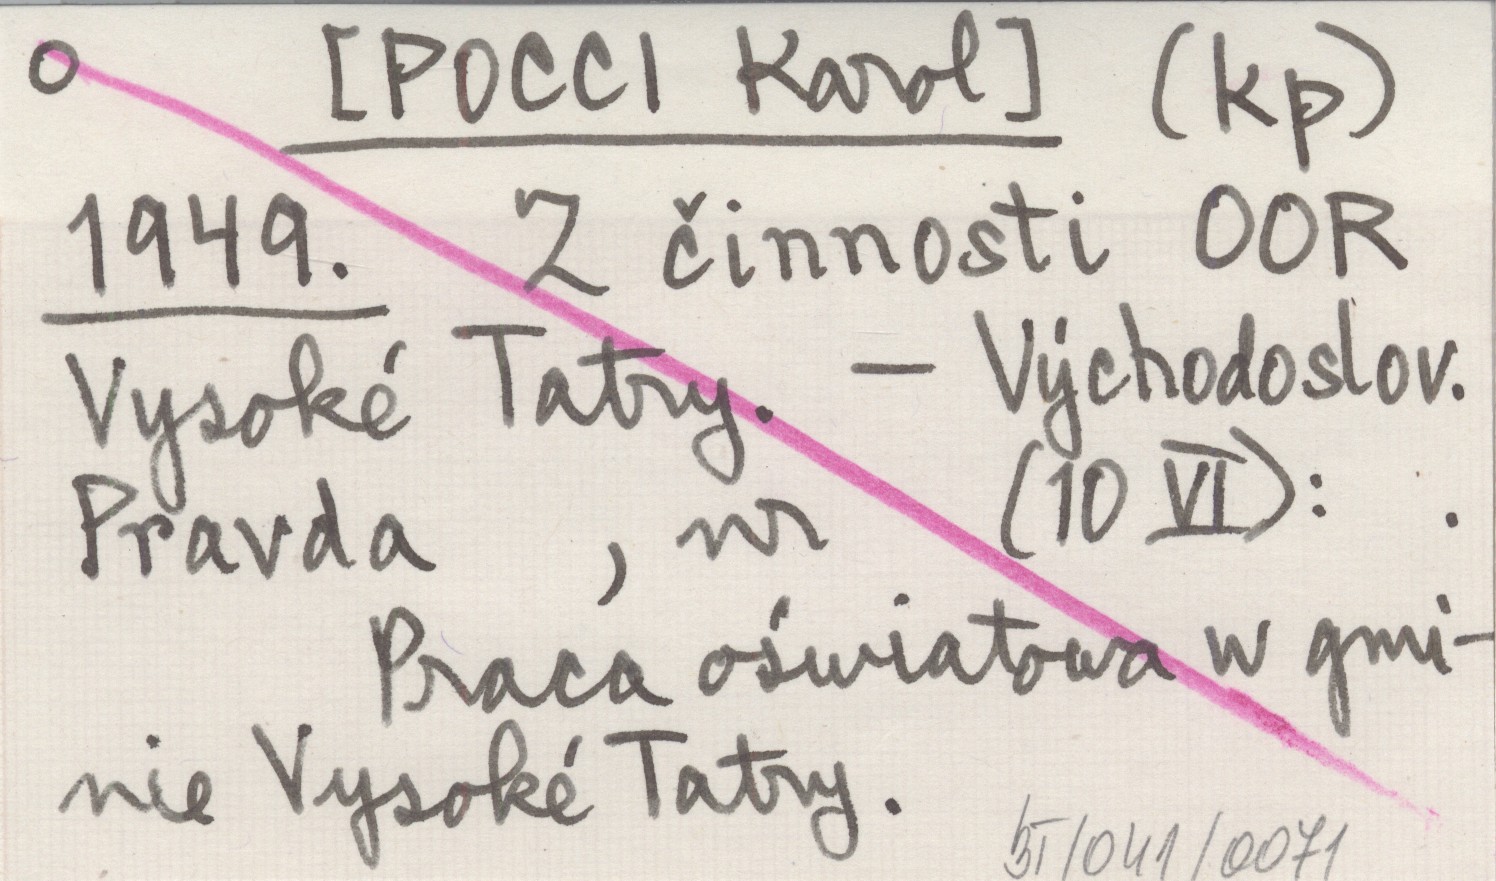 o [POCCI Karol] (kp)
1949. Z činnosti OOR
Vysoké Tatry. – Východoslov.
Pravda , nr (10 VI): .
Praca oświatowa w gmi-
nie Vysoké Tatry.
BI/041/0071